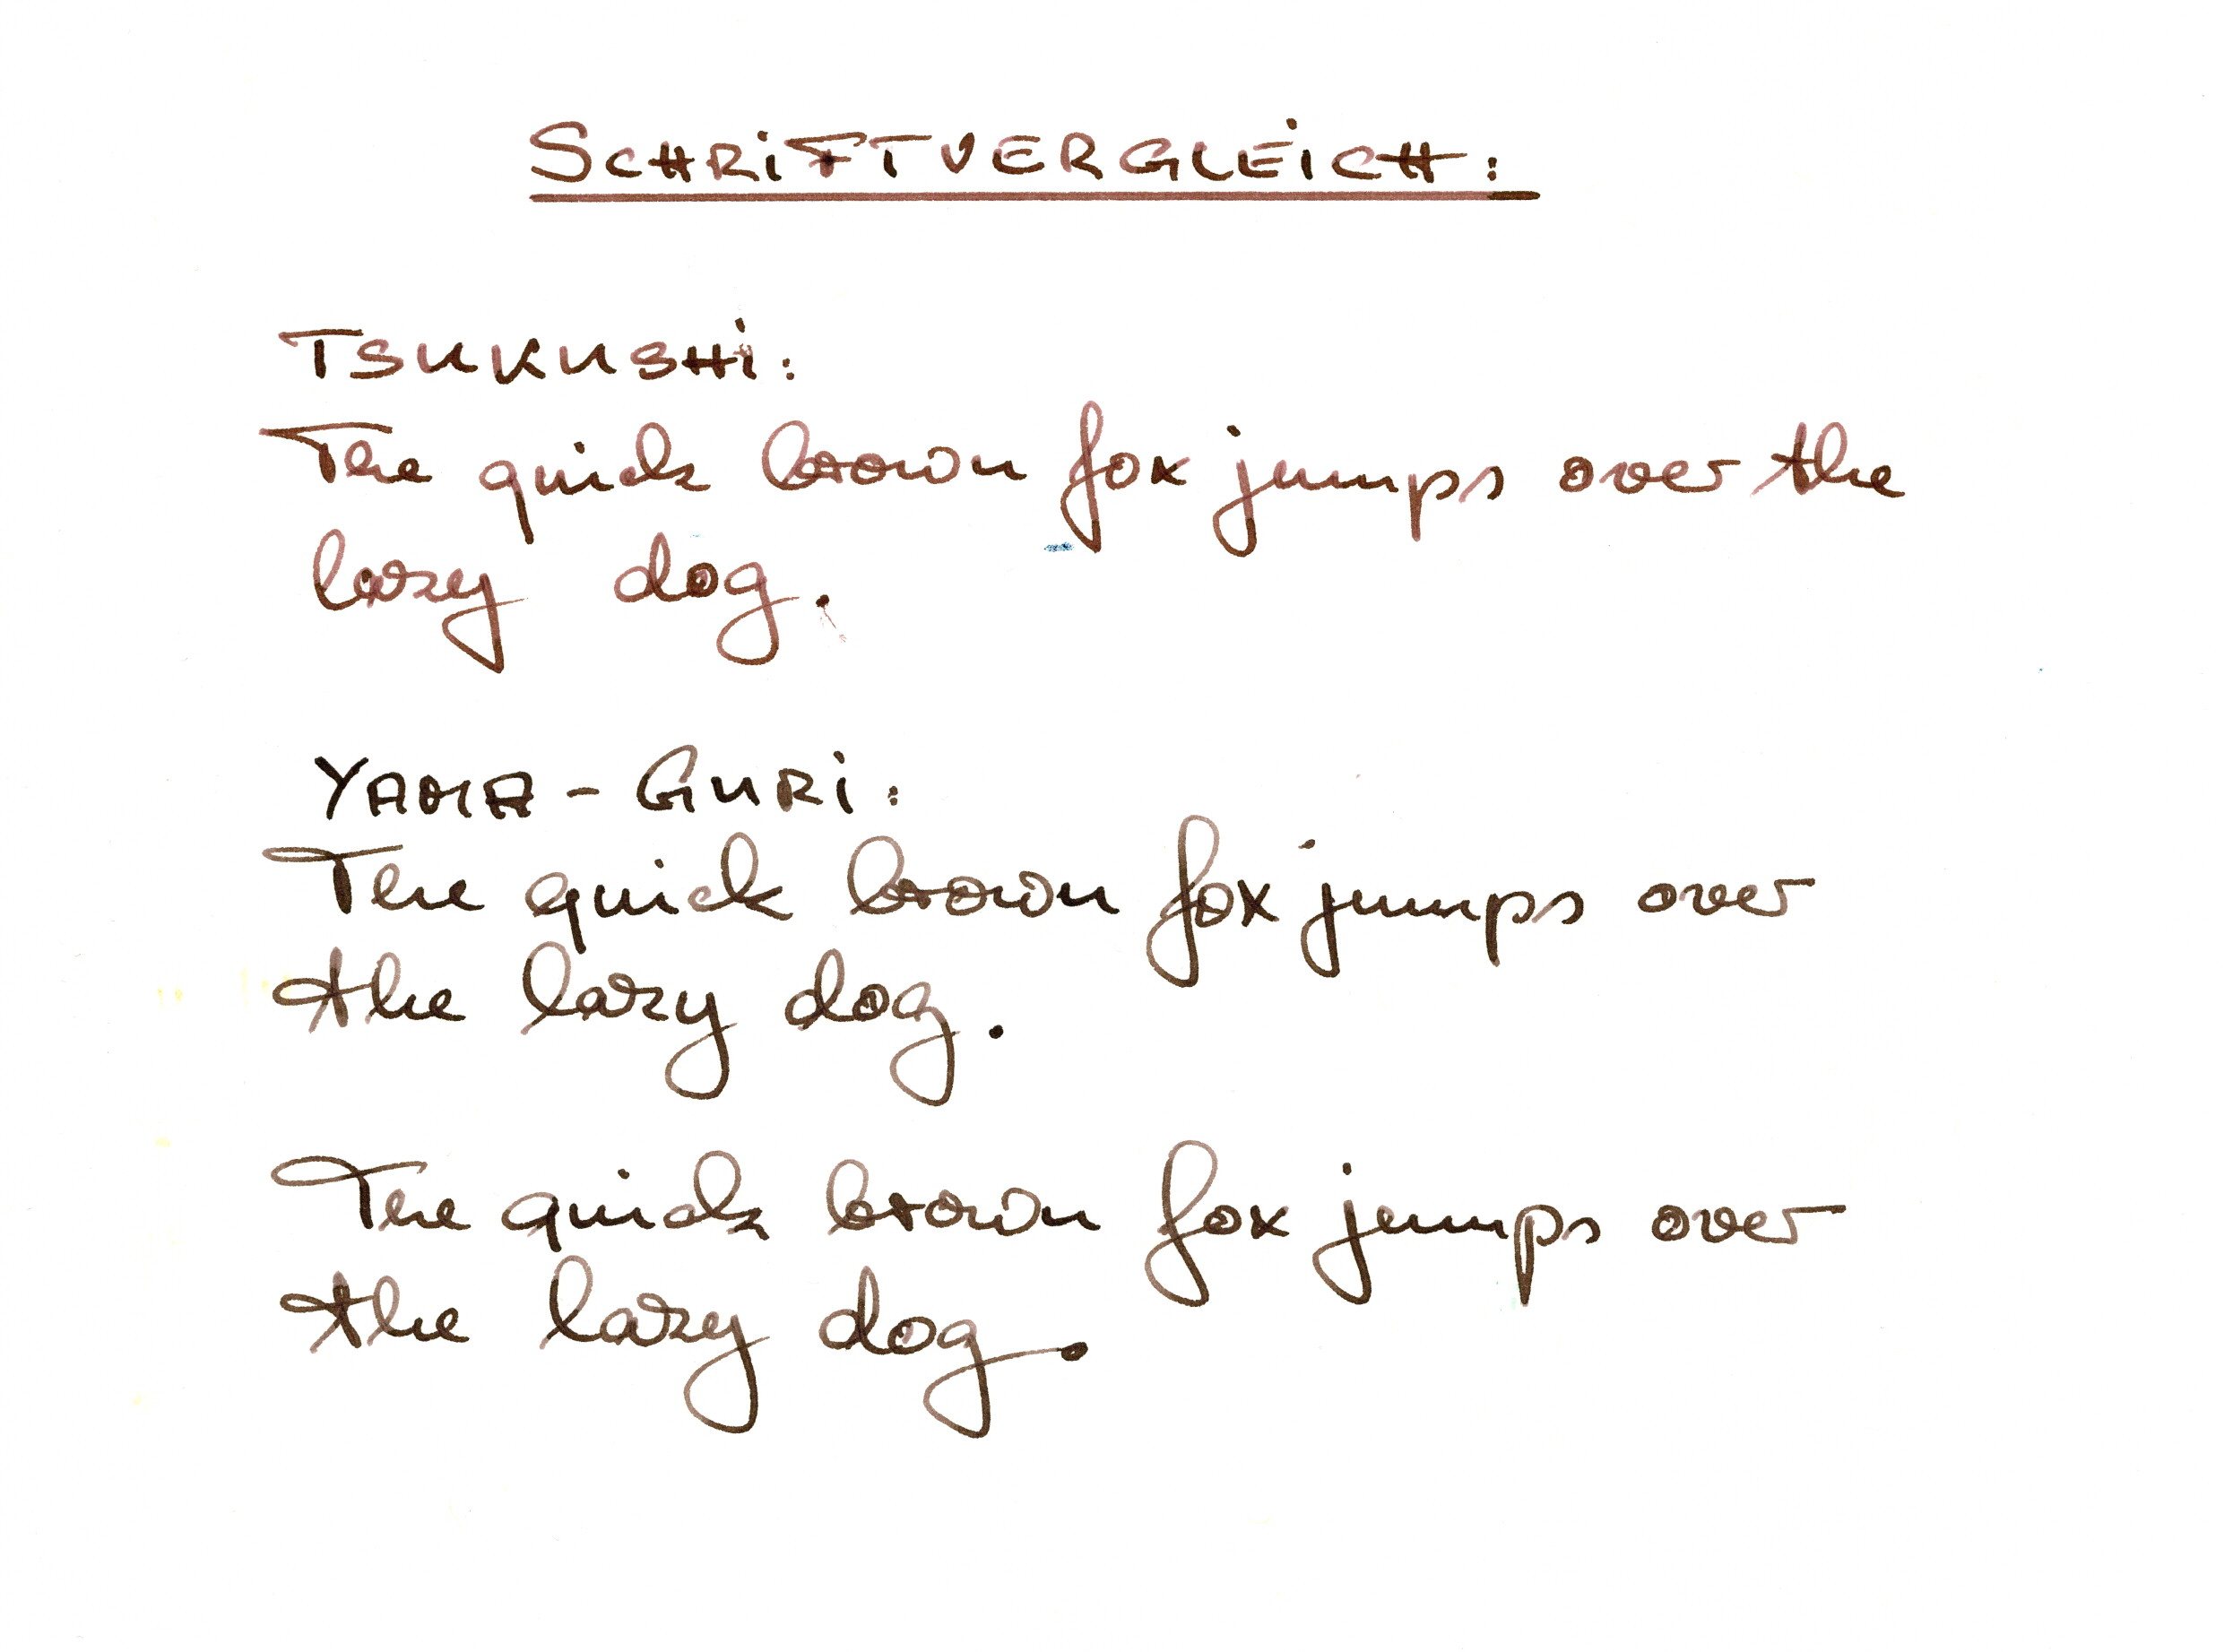 SCHRiFTVERGLEiCH:
TSUKUSHi:
The quick brown fox jumps over the
lazy dog.
YAMA-GURi:
The quick brown fox jumps over
the lazy dog.
The quick brown fox jumps over
the lazy dog.